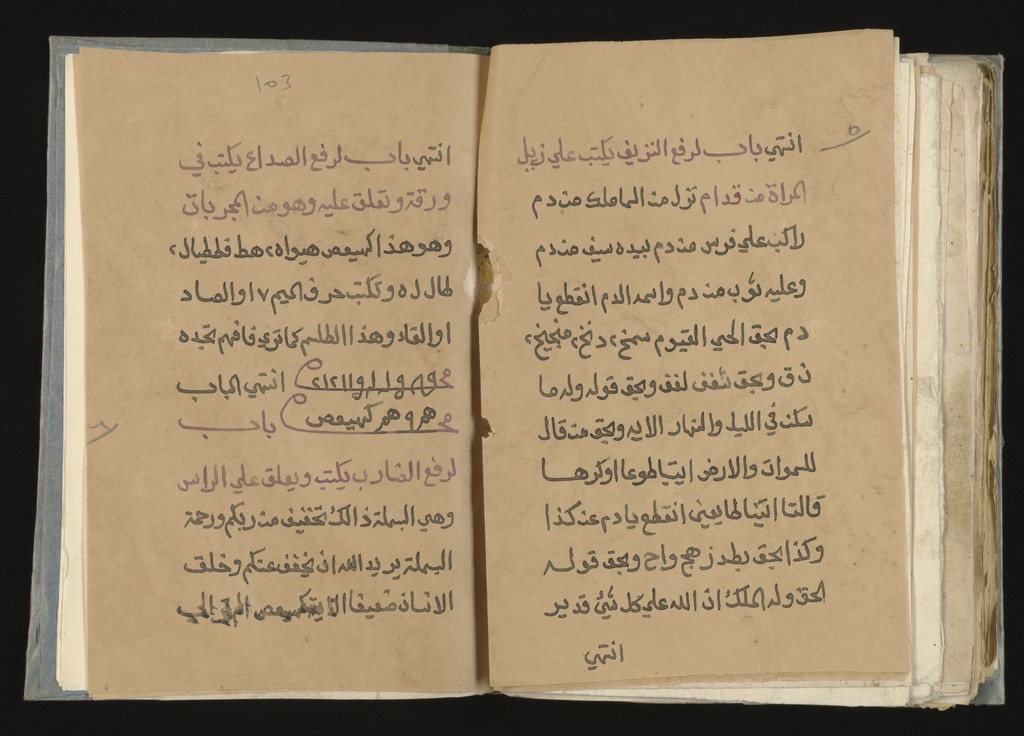 انتهي باب لرفع النزيف يكتب علي زيل
المراة من قدام نزل من الما ملك من دم
راكب علي فرس من دم بيده سيف من دم
وعليه ثوب من دم واسمه الدم انقطع يا
دم بحق الحي القيوم
وبحق وبحق قوله وله ما
سكن في الليل والنهار الايه وبحق من قال
للسموات والارض ايتيا طوعا او كرها
قالتا اتينا طايعين انقطع يا دم عن كذا
وكذا بحق بطد زهج واح وبحق قوله
الحق وله الملك ان الله علي كل شي قدير
انتهي
٥
103
انتهي باب لرفع الصداع يكتب في
ورقة وتعلق عليه وهو من المجربات
وهو هذا كهيعص
وتكتب حرف الميم ٧ او الصاد
او القاد وهذا الطلسم كما تري فافهم تجده
انتهي الباب
كهيعص باب
لرفع الضارب يكتب ويعلق علي الراس
وهي البسملة ذالك تخفيف من ربكم ورحمة
البسملة يريد الله ان يخفف عنكم وخلق
الانسان ضعيفا